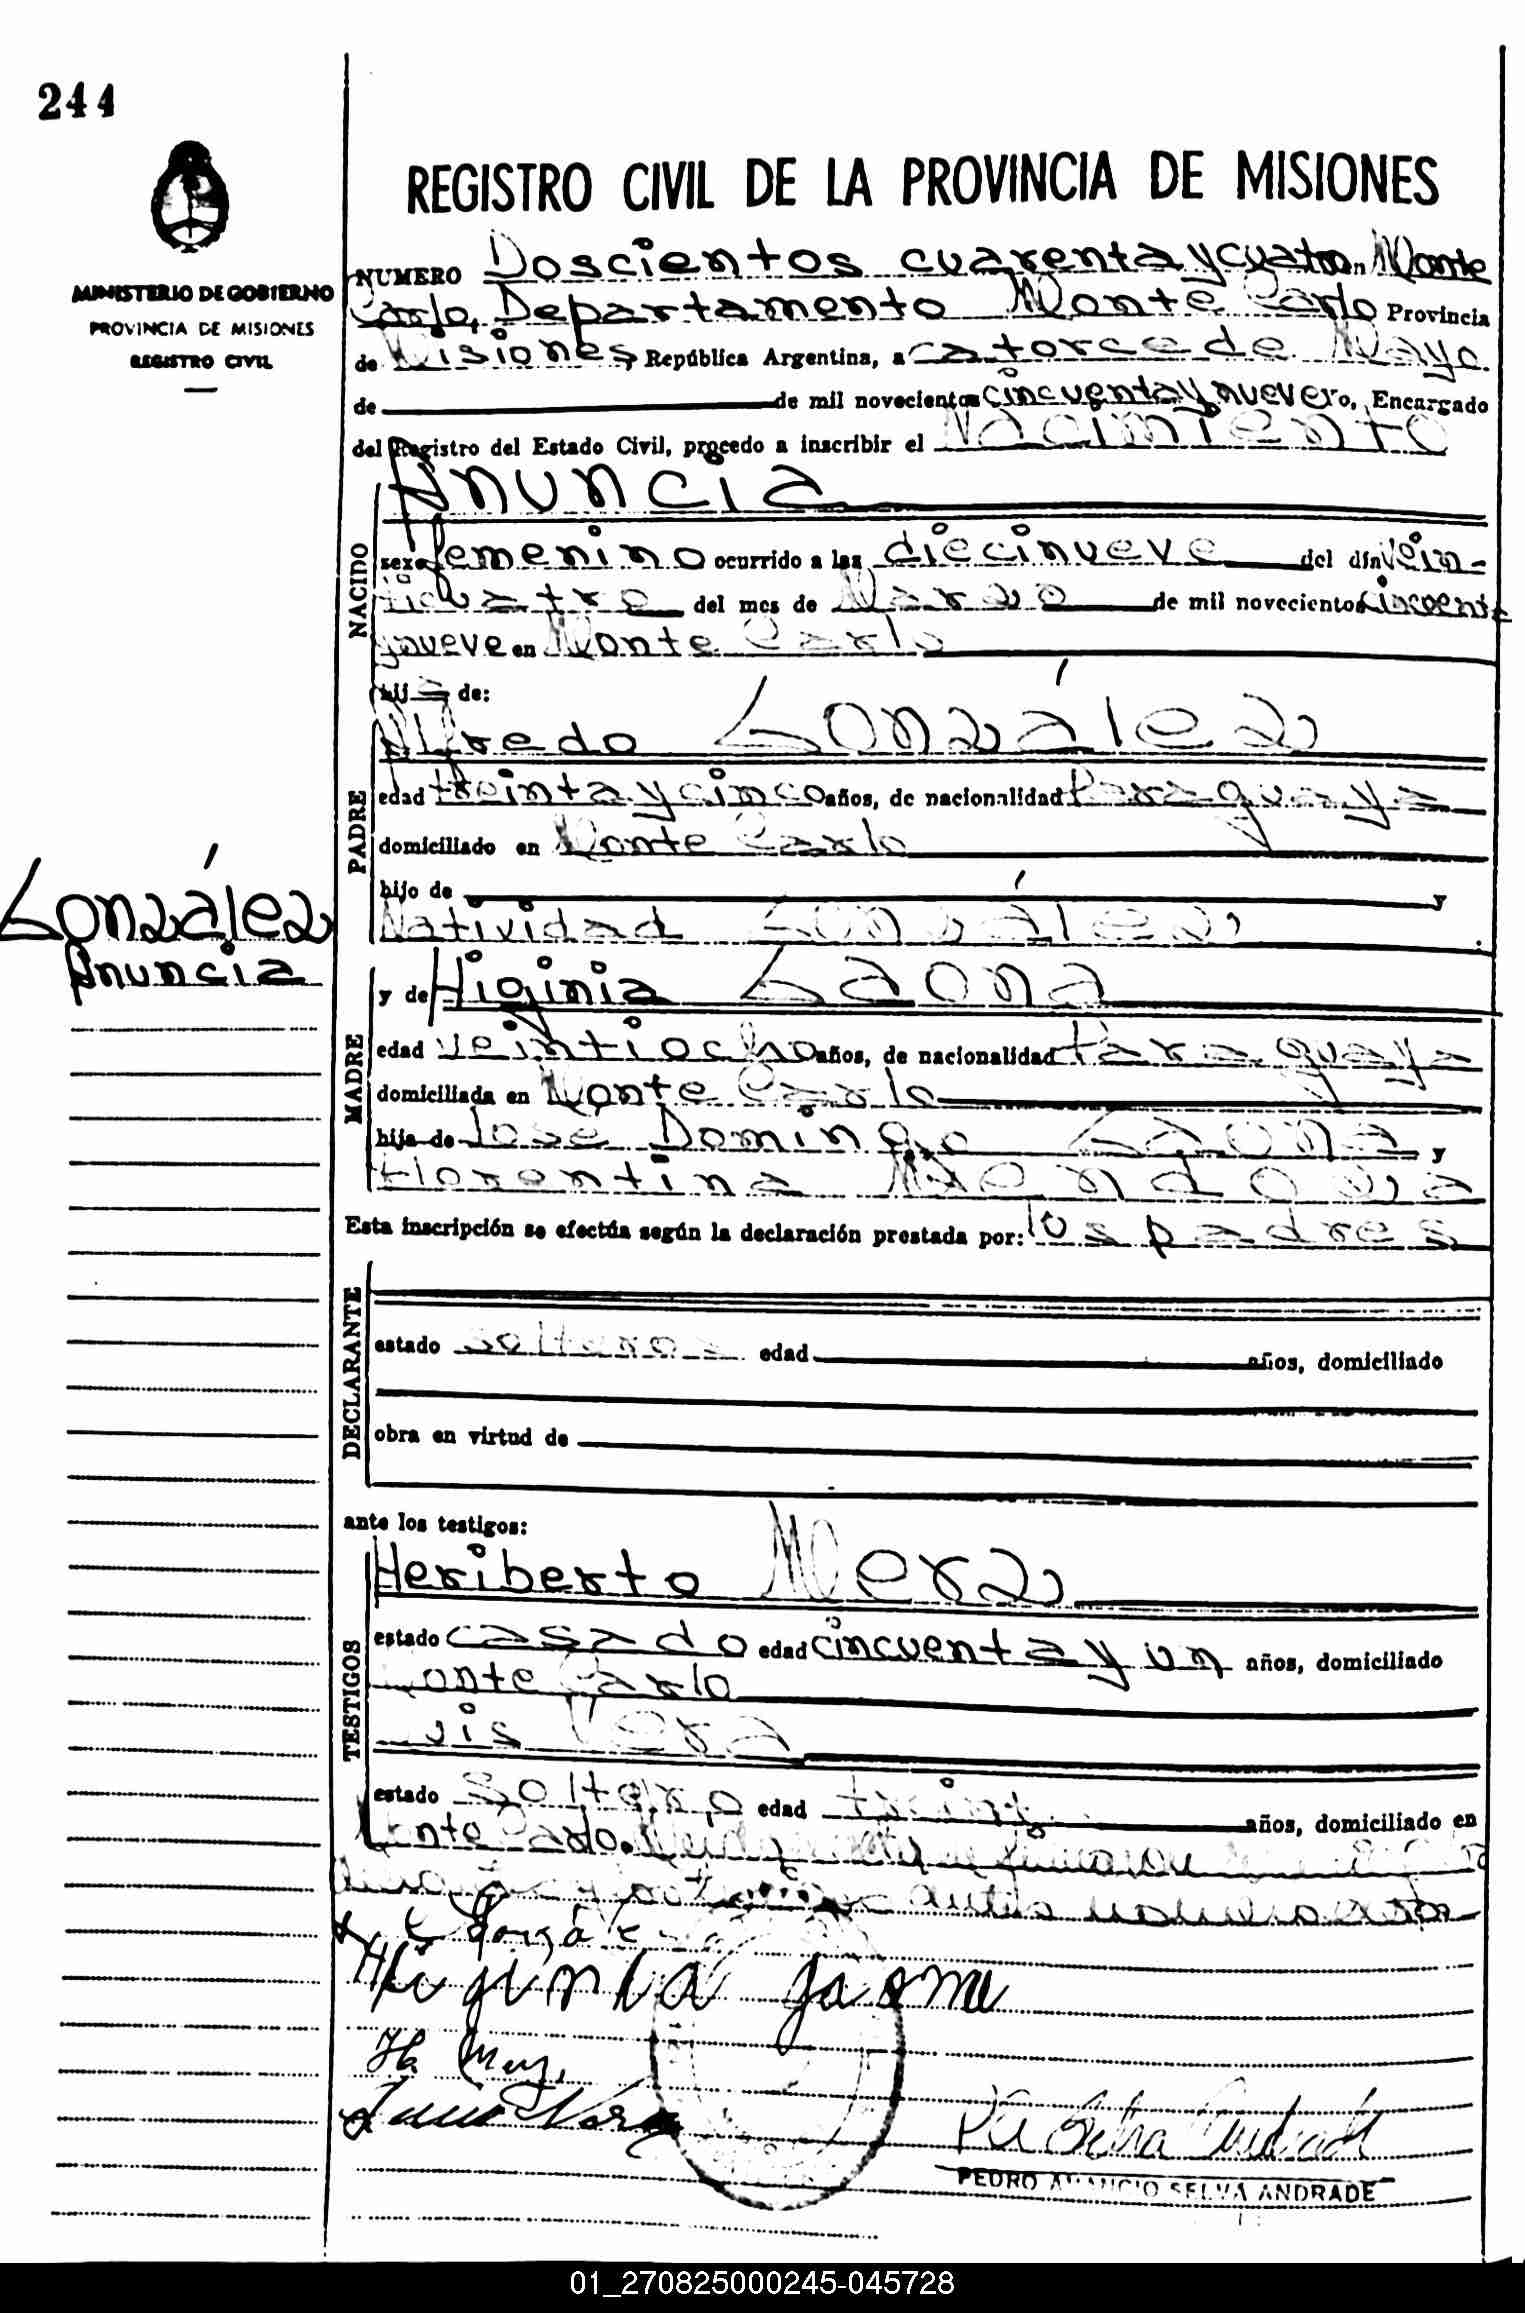 244
REGISTRO CIVIL DE LA PROVINCIA DE MISIONES
MINISTERIO DE GOBIERNO
PROVINCIA DE MISIONES
REGISTRO CIVIL
NUMERO Doscientos cuarenta y cuatro en Monte
Carlo, Departamento Monte Carlo Provincia
de Misiones, República Argentina, a catorce de Mayo
de de mil novecientos cincuenta y nueve Encargado
del Registro del Estado Civil, procedo a inscribir el Nacimiento
NACIDO
Anuncia
sexo femenino ocurrido a las diecinueve del día vein-
ticuatro del mes de Marzo de mil novecientos cincuenta
y nueve en Monte Carlo
hija de:
PADRE
Alfredo González
edad treinta y cinco años, de nacionalidad Paraguaya
domiciliado en Monte Carlo
hijo de y
Natividad González
González
Anuncia
MADRE
y de Higinia Gaona
edad veintiocho años, de nacionalidad Paraguaya
domiciliada en Monte Carlo
hija de José Domingo Gaona y
Florentina Mendoza
Esta inscripción se efectúa según la declaración prestada por: los padres
DECLARANTE
estado solteros edad años, domiciliado
obra en virtud de
ante los testigos:
TESTIGOS
Heriberto Merz
estado casado edad cincuenta y un años, domiciliado
Monte Carlo
Luis Vera
estado soltero edad años, domiciliado en
Monte Carlo.
Higinia Gaona
PEDRO AMANCIO SELVA ANDRADE
01_270825000245-045728